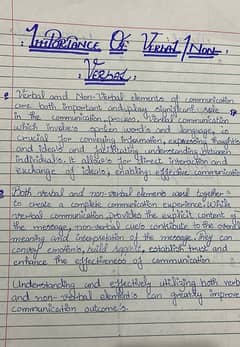 IMPORTANCE OF VERBAL / NON-
VERBAL
Verbal and Non-Verbal elements of communication
are both important and play significant role
in the communication process. Verbal communication
which involves spoken words and language, is
crucial for conveying information, expressing thoughts
and ideas and facilitating understanding between
individuals. It allows for direct interaction and
exchange of ideas, enabling effective communication
Both verbal and non-verbal elements used together
to create a complete communication experience. While
verbal communication provides the explicit content of
the message, non-verbal cues contribute to the overall
meaning and interpretation of the message. They can
convey emotions, build rapport, establish trust and
enhance the effectiveness of communication
Understanding and effectively utilizing both verb
and non-verbal elements can greatly improve
communication outcomes.